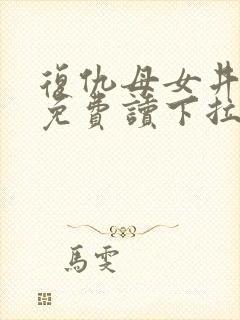 復仇母女丼
免費讀下拉
馬雯